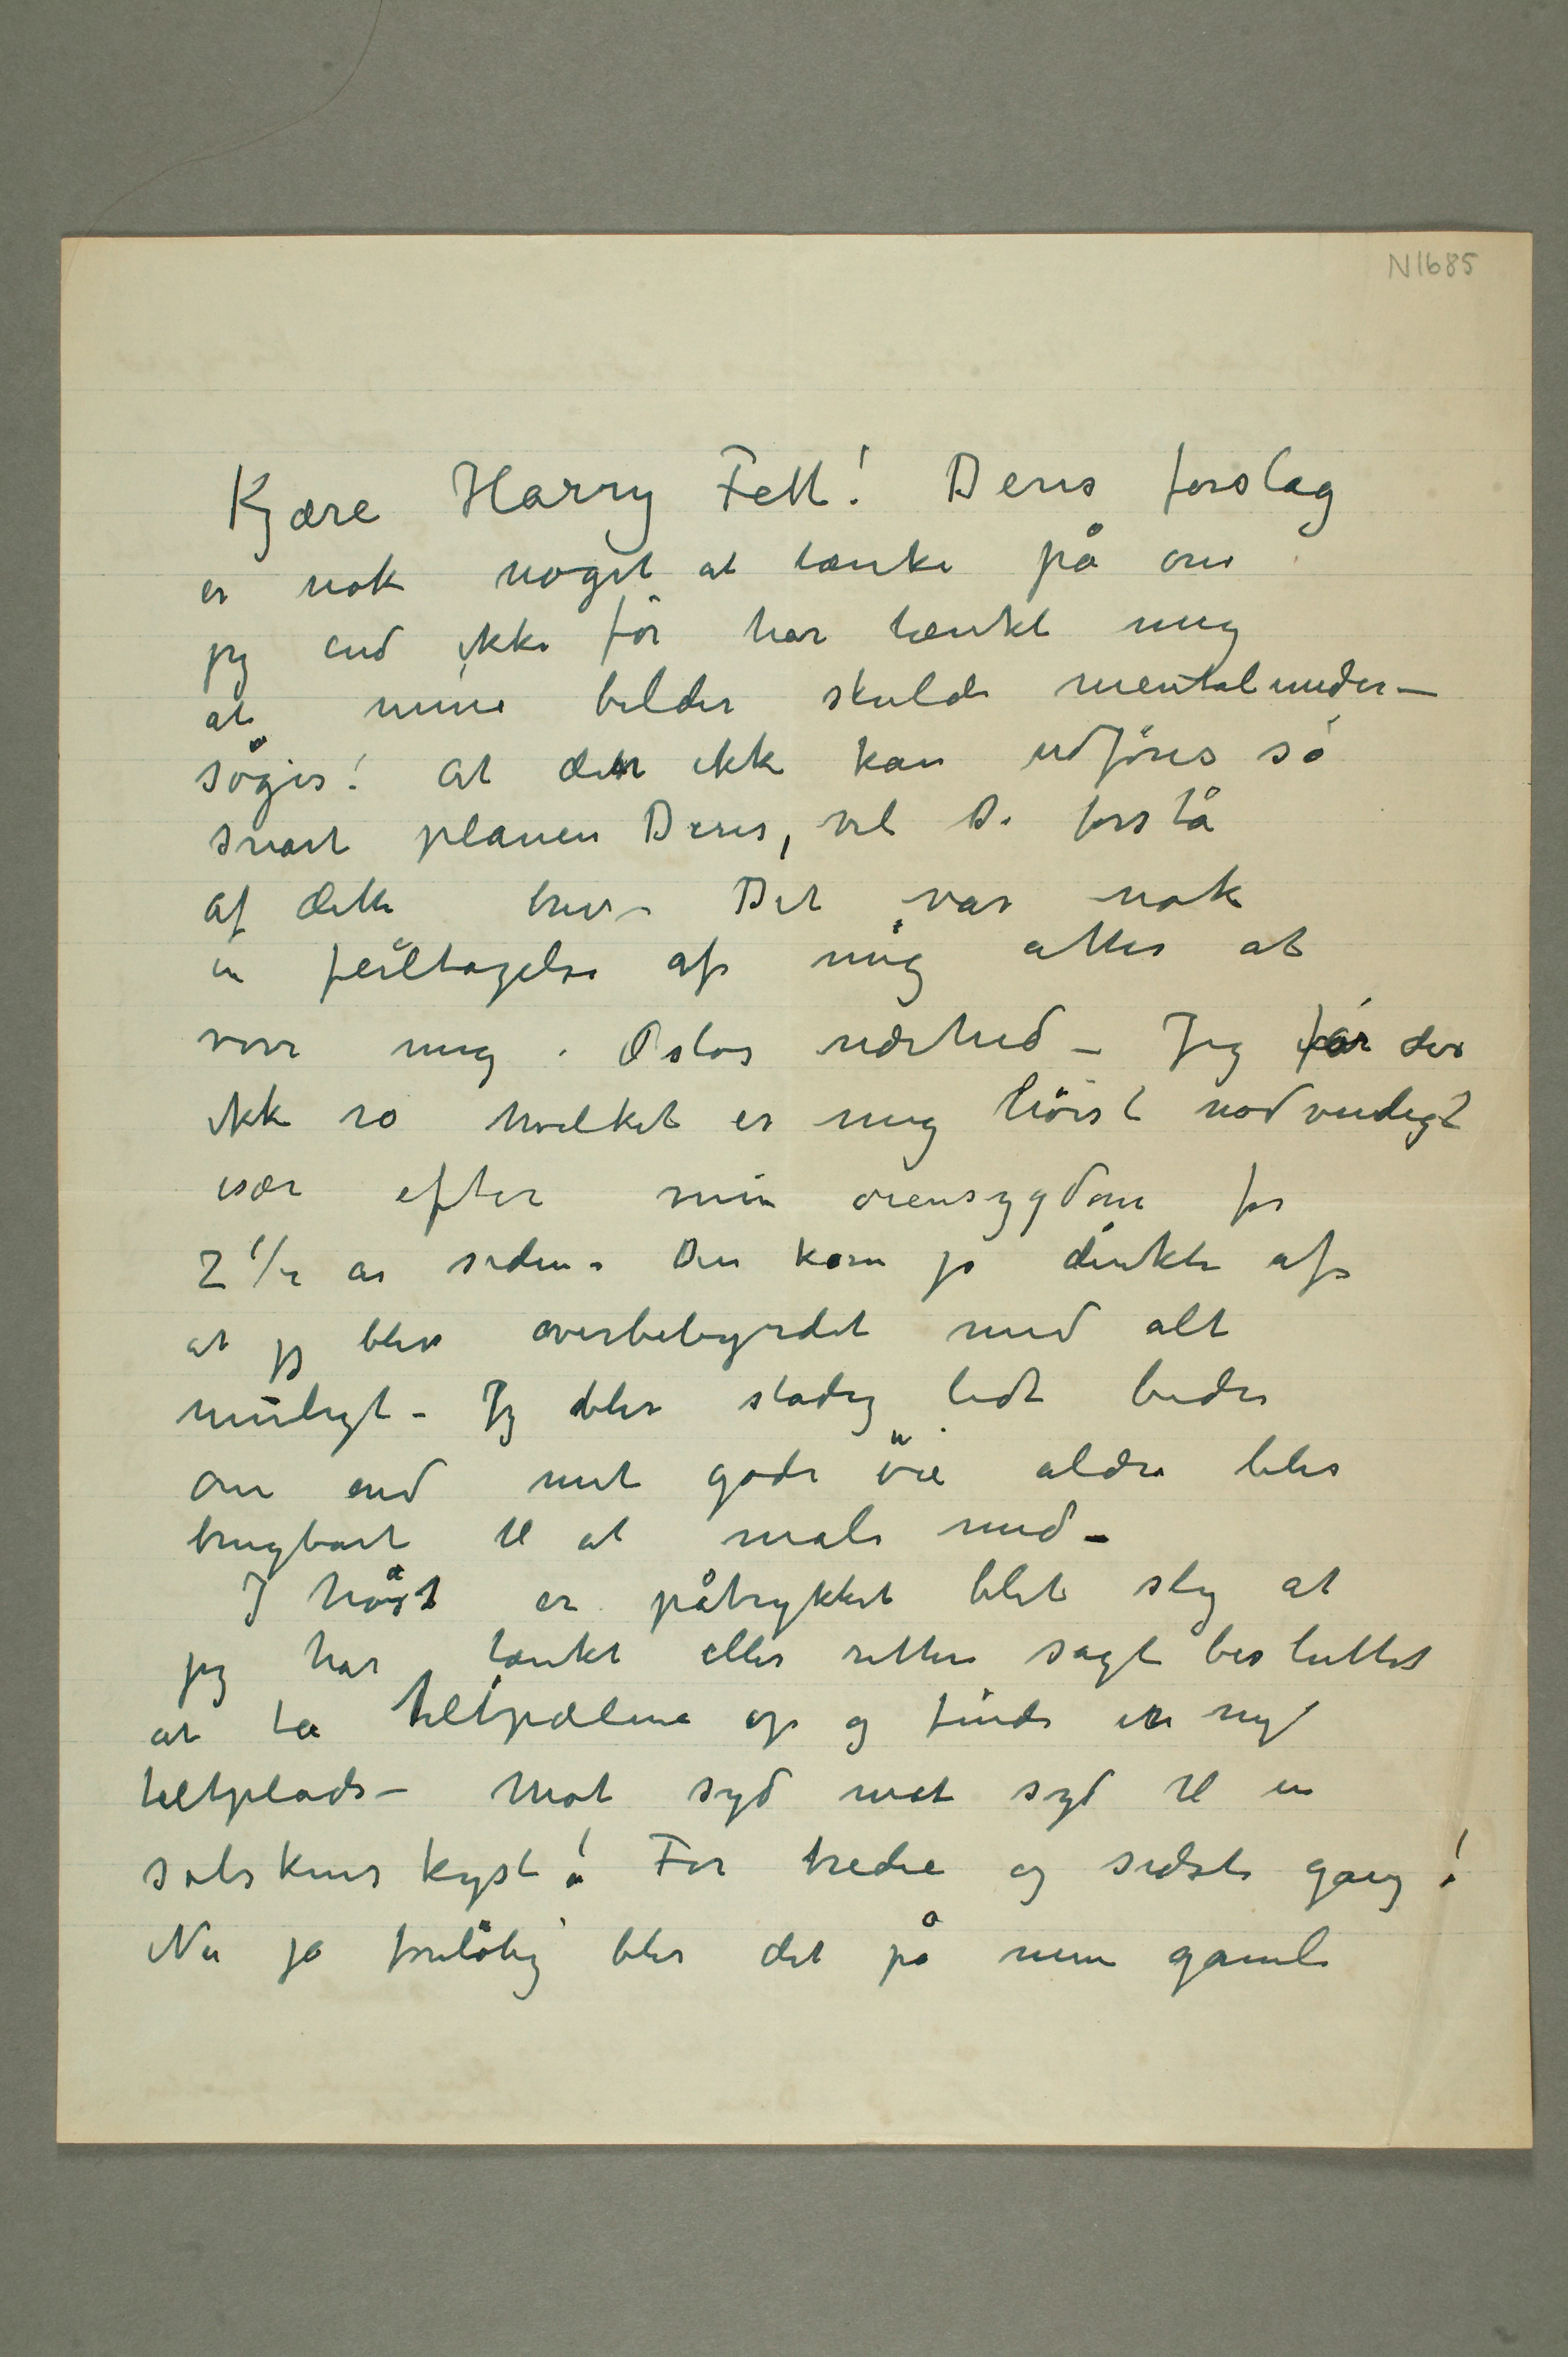 N1685
Kjære Harry Fett! Deres forslag
er nok noget at tænke på om
jeg end ikke för har tænkt mig
at mine bilder skulde mentalunder–
söges! At den ikke kan udföres så
snart planen Deres, vil De forstå
af dette brev – Det var nok
en feiltagelse af mig atter at
vove mig i Oslos nærhed – Jeg får der
ikke ro hvilket er mig höist nødvendigt
især efter min øiensygdom for
2 1/2 år siden – Den kom jo direkte af
at jeg blev overbebyrdet med alt
muligt – Jeg blir stadig lidt bedre
om end mit gode öie aldri blir
brugbart til at male med –
I höst er påtrykket blet slig at
jeg har tænkt eller rettere sagt besluttet
at ta teltpælene op og finde en ny
teltplads – Mot syd mot syd til en
solskinskyst! For tredie og sidste gang!
Nu ja forelöbig blir det på mine gamle